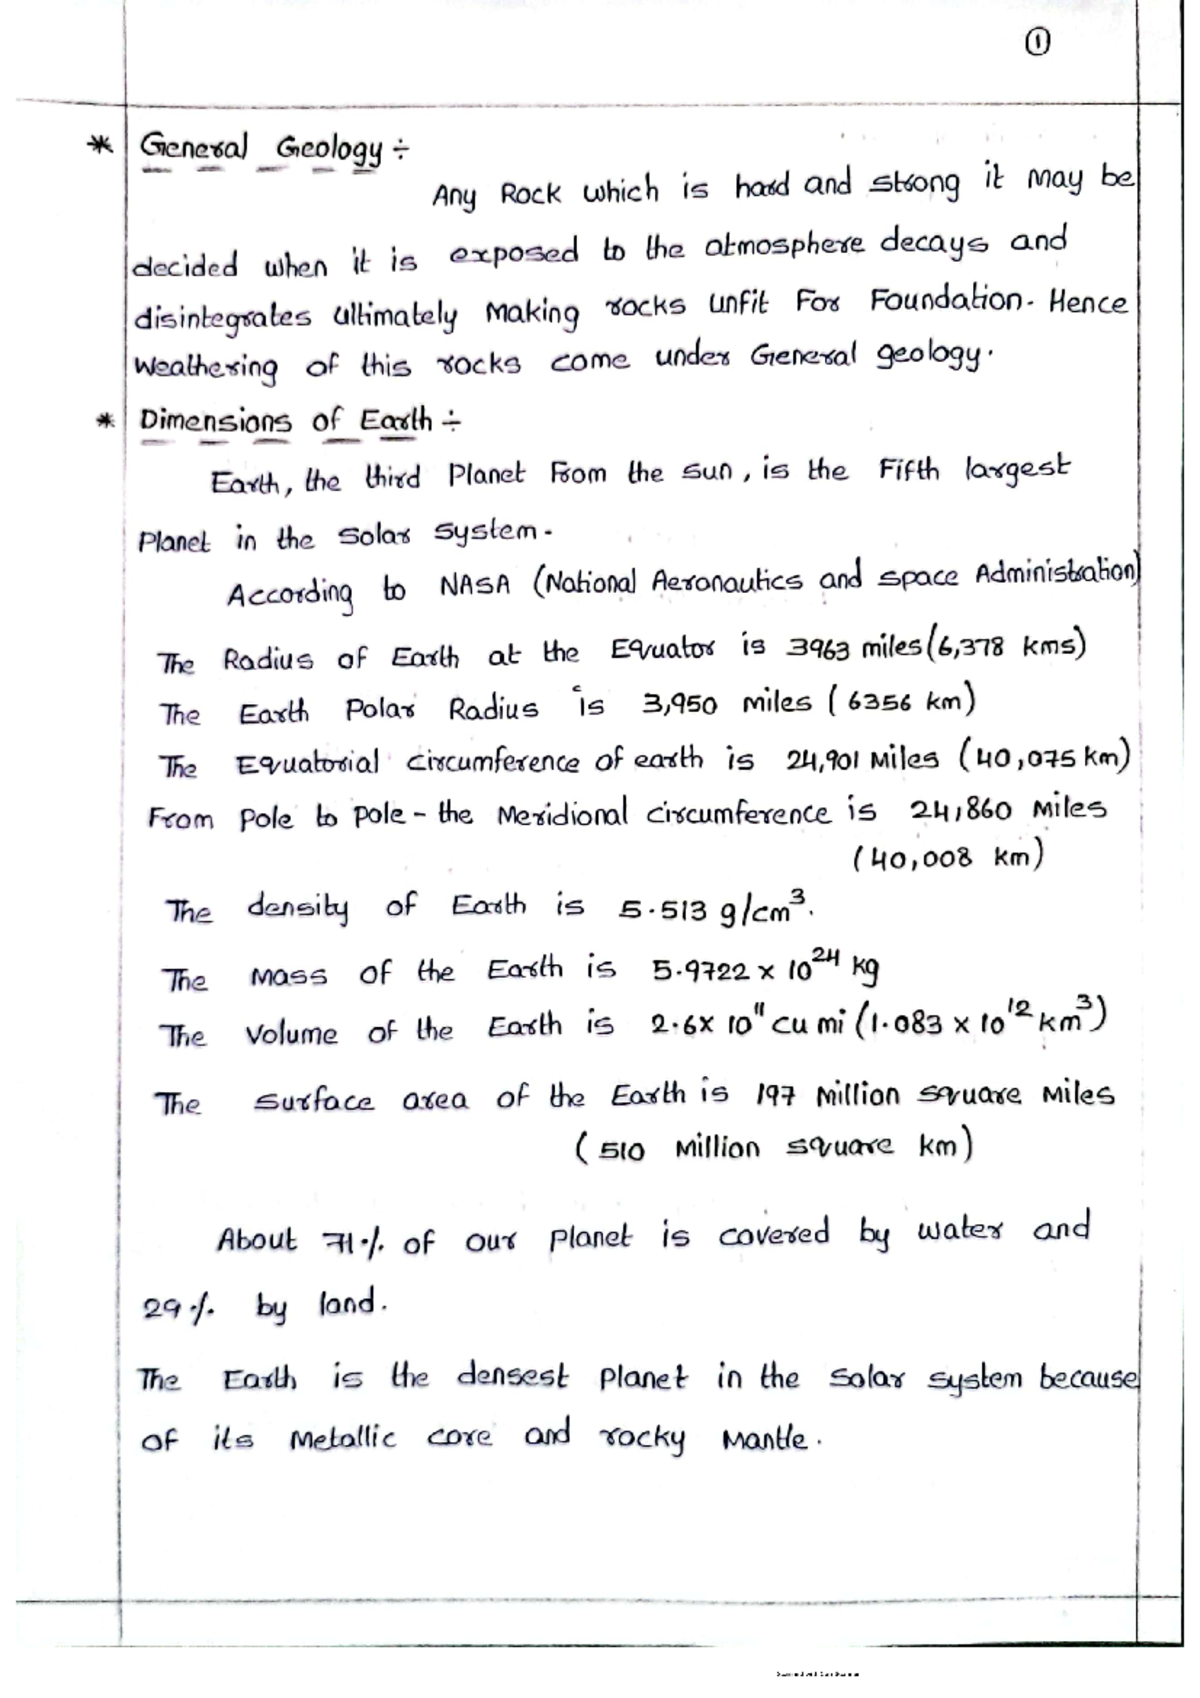 ①
* General Geology ÷
Any Rock which is hard and strong it may be
decided when it is exposed to the atmosphere decays and
disintegrates ultimately Making rocks unfit For Foundation. Hence
Weathering of this rocks come under General geology.
* Dimensions of Earth ÷
Earth, the third Planet From the sun, is the Fifth largest
Planet in the solar system.
According to NASA (National Aeronautics and space Administration)
The Radius of Earth at the Equator is 3963 miles (6,378 kms)
The Earth Polar Radius is 3,950 miles (6356 km)
The Equatorial circumference of earth is 24,901 Miles (40,075 km)
From Pole to Pole - the Meridional circumference is 24,860 Miles
(40,008 km)
The density of Earth is 5.513 g/cm³.
The Mass of the Earth is 5.9722 x 10²⁴ kg
The Volume of the Earth is 2.6x 10¹¹ cu mi (1.083 x 10¹² km³)
The surface area of the Earth is 197 Million square Miles
(510 Million square km)
About 71% of our planet is covered by water and
29% by land.
The Earth is the densest Planet in the Solar system because
of its Metallic core and rocky Mantle.